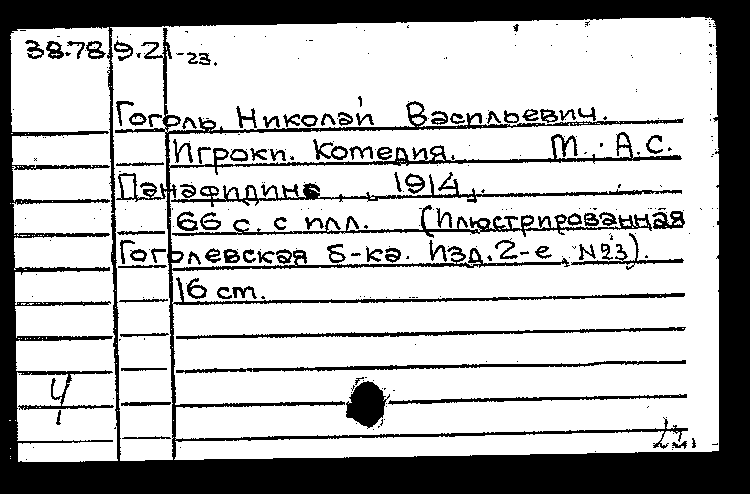 38.78.9.21-23.
Гоголь, Николай Васильевич.
Игроки. Комедия. М., А.С.
Панафидина, [1914].
66 с. с илл. (Иллюстрированная
Гоголевская б-ка. Изд. 2-е, №23).
16 cm.
Ч